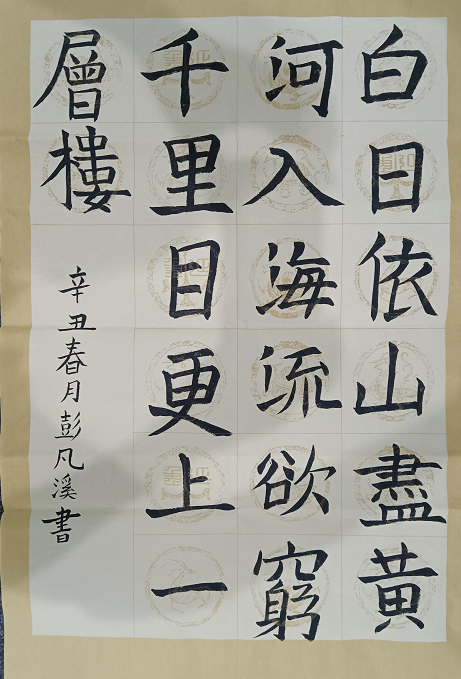 白日依山盡黄
河入海流欲窮
千里目更上一
層樓
辛丑春月彭凡溪書